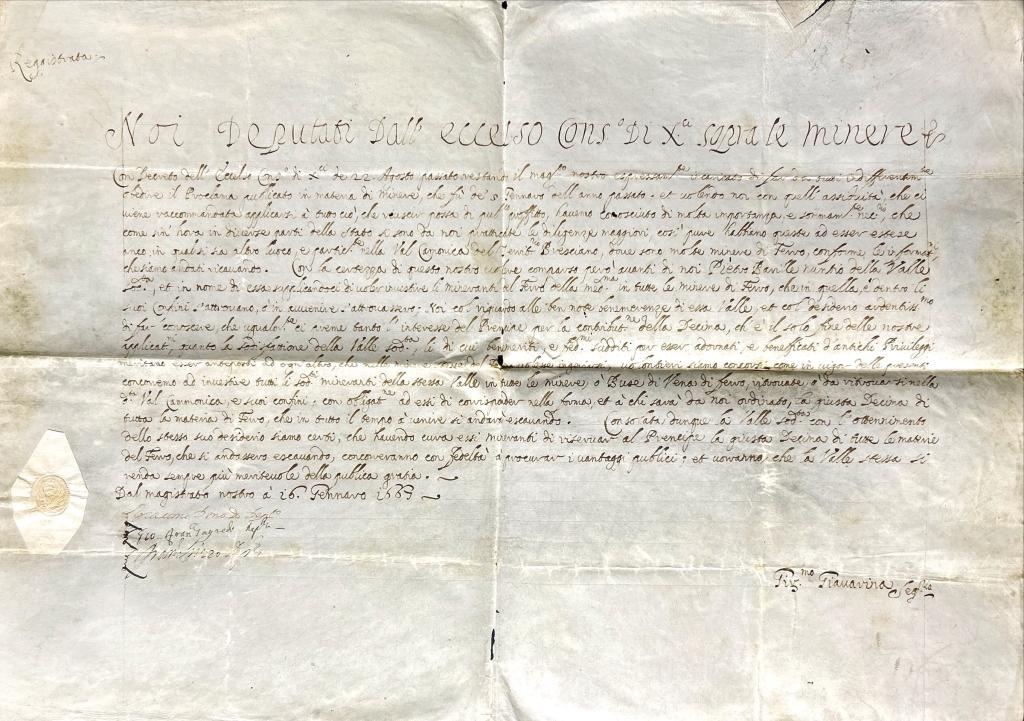 Reggistrata
Noi Deputati Dall' eccelso Cons.o Di X.ci sopra le minere
Con Decreto dell' Eccelso Cons.o di X.ci de 22 Agosto passato restando il mag.to nostro
obedire il Proclama publicato in materia di minere, che fù de 5 Gennaro dell'anno passato. et volendo noi con quell'assiduità, che ci
viene raccommandata applicarsi à tutto ciò, che riuscir possa di pub.co proffitto, havemo conosciuto di molta importanza, e sommam.te nec.o, che
come sin hora in diverse parti dello Stato si sono da noi pratticate le diligenze maggiori così pure habbino queste ad esser estese
anco in qualsisia altro luoco, e partic.te nella Val Camonica del Territ.o Bresciano, dove sono molte minere di Ferro, conforme le informat.i
che siamo andati ricavando. Con la certezza di questo nostro volere comparso però avanti di noi Pietro nuntio della Valle
sod.ta, et in nome di essa supplicandoci di voler investire li mineranti del Ferro della med.ma in tutte le minere di Ferro, che in quella, e dentro li
suoi Confini s'attrovano, ò in avvenire s'attrovassero; Noi col riguardo alle ben note benemerenze di essa Valle, et col desiderio ardentiss.mo
di far conoscere, che ugualm.te ci preme tanto l'interesse del Prencipe per la contribut.ne della Decima, ch'è il solo fine delle nostre
applicat.ni, quanto la sodisfatione della Valle sod.ta, li di cui benemeriti e fed.mi sudditi per esser adornati, e beneficati d'antichi Privileggi
meritano esser anteposti ad ogni altro, che volontieri siamo concorsi come in vigor delle presenti
concorremo ad investire tutti li sod.ti mineranti della stessa Valle in tutte le minere, ò Buse di Vena di ferro, ritrovate, ò da ritrovarsi nella
d.ta Val Cammonica, e suoi confini, con obligat.ne ad essi di corrisponder nella forma, et à chi sarà da noi ordinato, la giusta Decima di
tutta la materia di Ferro, che in tutto il tempo à venire si andarà escavando. Consolata dunque la Valle sod.ta con l'ottenimento
dello stesso suo desiderio siamo certi, che havendo cura essi mineranti di riservar al Prencipe la giusta Decima di tutte le materie
del Ferro, che si andassero escavando, concorreranno con fedeltà à procurar i vantaggi publici, et vorranno, che la Valle stessa si
renda sempre più meritevole della publica gratia.
Dal magistrato nostro à 16 Gennaro 1667
Dep.to
Gir.mo Giavarina Seg.rio